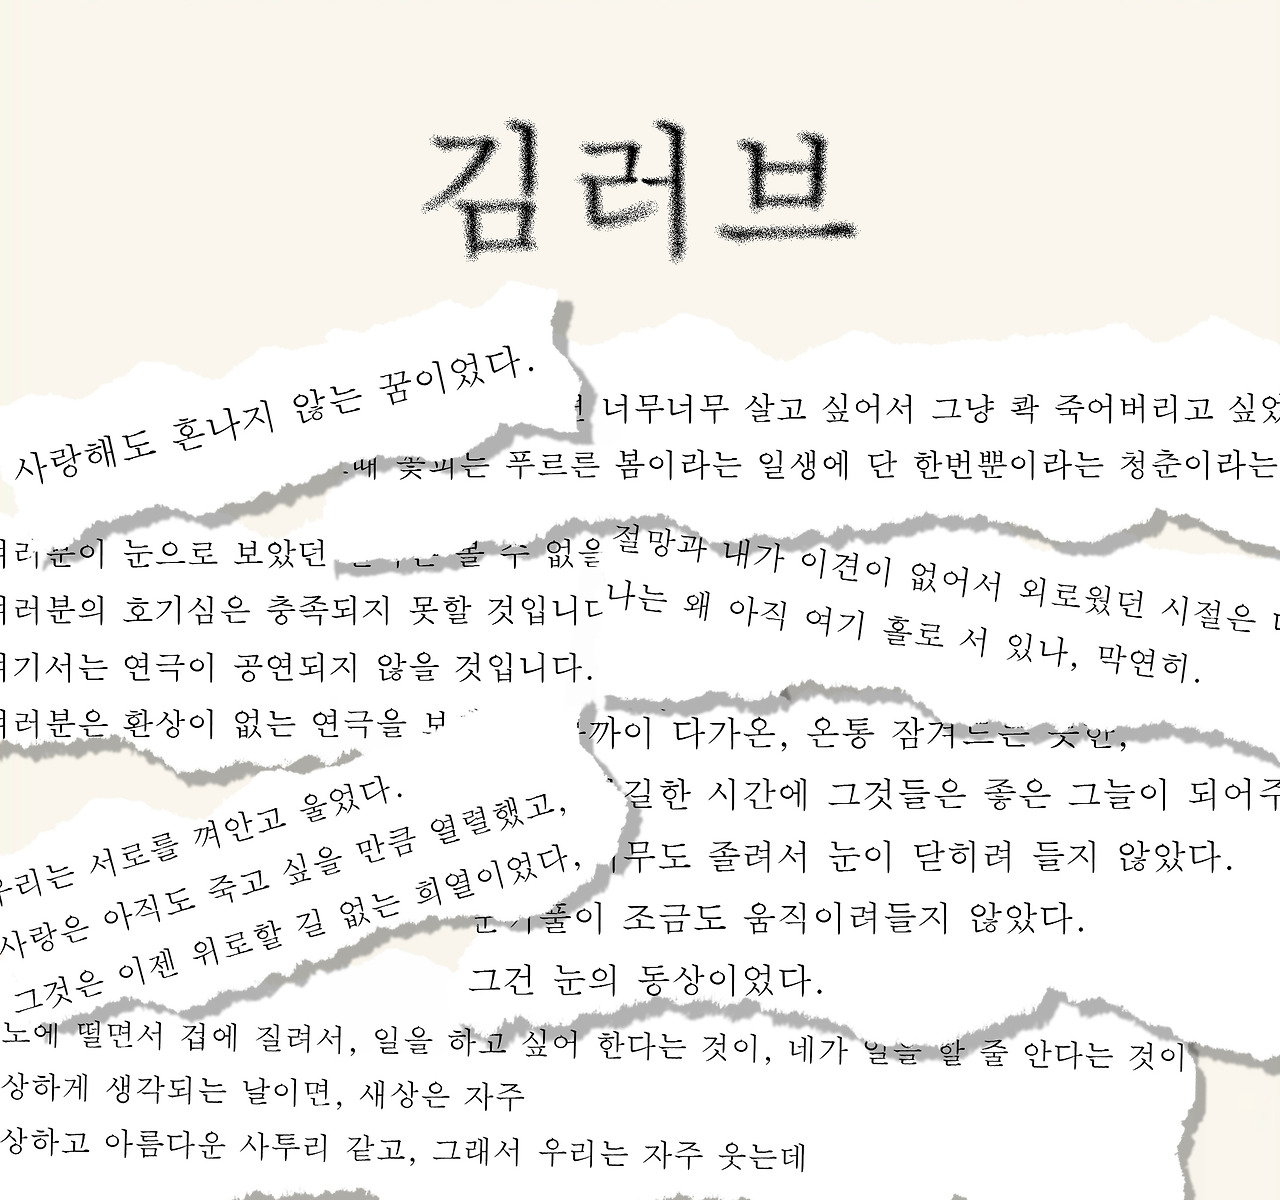 김러브
사랑해도 혼나지 않는 꿈이었다.
너무너무 살고 싶어서 그냥 콱 죽어버리고
꽃피는 푸르른 봄이라는 일생에 단 한번뿐이라는 청춘이라는
눈으로 보았던
볼 수 없을
호기심은 충족되지 못할 것입니다
연극이 공연되지 않을 것입니다.
환상이 없는 연극을
절망과 내가 이견이 없어서 외로웠던 시절은
나는 왜 아직 여기 홀로 서 있나, 막연히.
다가온, 온통 잠겨드는 못안,
길한 시간에 그것들은 좋은 그늘이
졸려서 눈이 닫히려 들지 않았다.
조금도 움직이려들지 않았다.
그건 눈의 동상이었다.
우리는 서로를 껴안고 울었다.
사랑은 아직도 죽고 싶을 만큼 열렬했고,
그것은 이젠 위로할 길 없는 희열이었다,
떨면서 겁에 질려서, 일을 하고 싶어 한다는 것이, 네가 일을 할 줄 안다는 것이
상하게 생각되는 날이면, 새상은 자주
상하고 아름다운 사투리 같고, 그래서 우리는 자주 웃는데